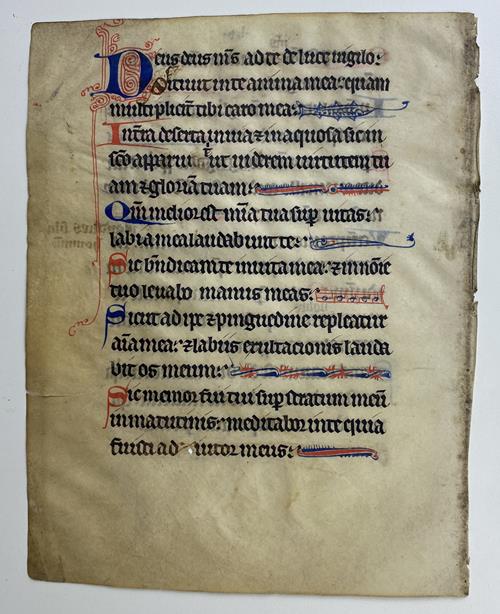 Deus deus m̄s ad te de luce uigilo:
Sitiuit in te anima mea: quam
multiplicit̄ tibi caro mea:
In t̄ra deserta inuia ⁊ inaquosa sic in
sc̄o apparui t̄ ut uiderem uirtutem tu
am ⁊ gloriā tuam:
Qm̄ melior est mīa tua sup̄ uitas:
labia mea laudabunt te:
Sic bn̄dicam te in uita mea: ⁊ in nōīe
tuo leuabo manus meas:
Sicut adipe ⁊ pinguedine repleatur
aīa mea: ⁊ labiis exultacionis lauda
bit os meum:
Sic memor fui tui sup̄ stratum meū
in matutinis: meditabor in te quia
fuisti adiutor meus: